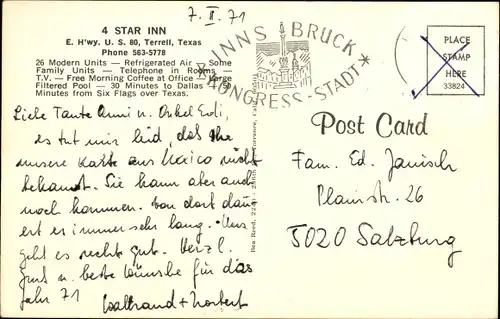 7. II. 71
4 STAR INN
E. H'wy. U. S. 80, Terrell, Texas
Phone 563-5778
26 Modern Units — Refrigerated Air — Some
Family Units — Telephone in Rooms —
T.V. — Free Morning Coffee at Office — Large
Filtered Pool — 30 Minutes to Dallas
Minutes from Six Flags over Texas.
INNSBRUCK
KONGRESS-STADT *
PLACE
STAMP
HERE
33824
Post Card
Liebe Tante Anni u. Onkel Edi,
es tut mir leid, daß Ihr
unsere Karte aus Mexico nicht
bekamt. Sie kann aber auch
noch kommen. Von dort dau-
ert es immer sehr lang. Uns
geht es recht gut. Herzl.
Grüße u. beste Wünsche für das
Jahr 71
Waltraud + Norbert
Fam. Ed. Janisch
Plainstr. 26
5020 Salzburg